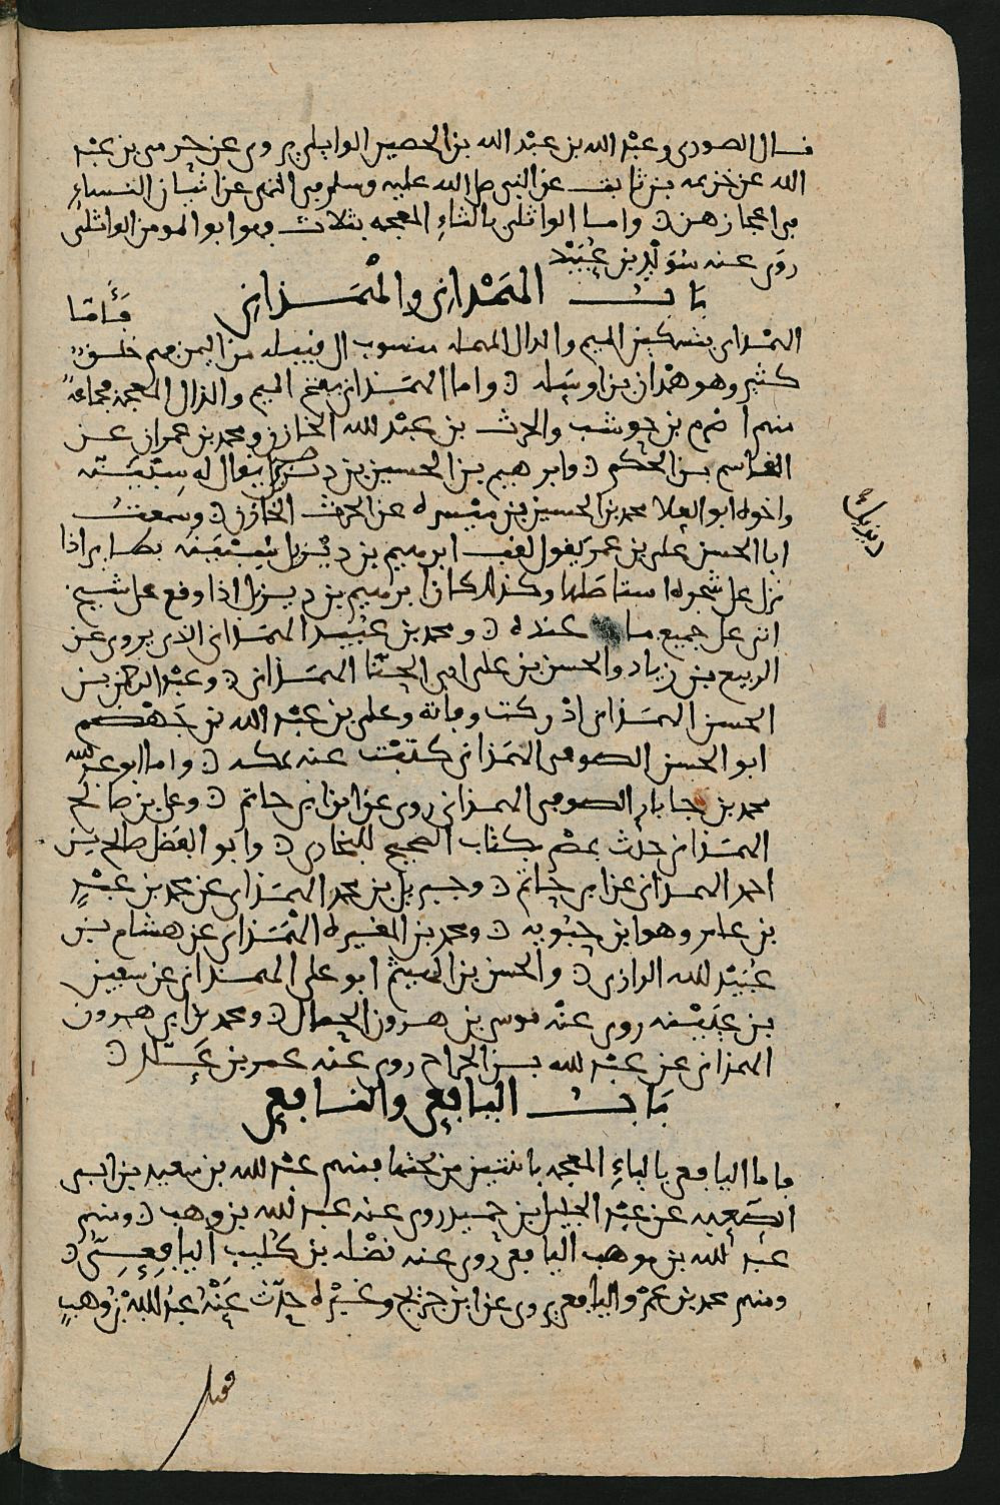 قال الصوري وعبد الله بن عبد الله بن الحصين الوايلي يروي عن حرمي بن عبد
الله عن خزيمه بن ثابت عن النبي صلى الله عليه وسلم في النهي عن اتيان النساء
في اعجازهن واما الواثلي بالثاء المعجمه بثلاث فهو ابو المومن الواثلي
روى عنه سويد بن عبيد
باب الهمداني والهمذاني
فأما
الهمداني بتسكين الميم والدال المهمله منسوب الى قبيله من اليمن فهم خلق
كثير وهو همدان بن اوسله واما الهمذاني بفتح الميم والذال المعجمة فجماعة
منهم اصرم بن حوشب والحرث بن عبد الله الخازن ومحمد بن عمران عن
القاسم بن الحكم وابرهيم بن الحسين بن ديزيل يقال له سيبنه
واخوه ابو العلا محمد بن الحسين بن ميسره عن الحرث الخازن وسمعت
ابا الحسن علي بن عمر يقول لقب ابرهيم بن ديزيل بسيبنه بطاير اذا
نزل على شجره استاصلها وكذلك كان ابرهيم بن ديزيل اذا وقع على شيخ
اتى على جميع ما عنده ومحمد بن عبيد الهمذاني الذي يروي عن
الربيع بن زياد والحسن بن علي ابي الحنا الهمذاني وعبد الرحمن بن
الحسن الهمذاني ادركت وفاته وعلي بن عبد الله بن جهضم
ابو الحسن الصوفي الهمذاني كتبت عنه بمكه واما ابو عبد الله
محمد بن جابار الصوفي الهمذاني روى عن ابن ابي حاتم وعلي بن صالح
الهمذاني حدث بمصر بكتاب الصحيح للبخاري وابو الفضل صالح بن
احمد الهمذاني عن ابي حاتم وجبريل بن محمد الهمذاني عن محمد بن عبد
بن عامر وهو ابن حبويه ومحمد بن المغيره الهمذاني عن هشام بن
عبيد الله الرازي والحسن بن الهيثم ابو علي الهمذاني عن سفين
بن عيينه روى عنه موسى بن هرون الحمال ومحمد بن ابي هرون
الهمذاني عن عبد الله بن الجراح روى عنه عمر بن
باب اليافعي والنافعي
فاما اليافعي بالياء المعجمه باثنتين من تحتها فمنهم عبد الله بن سعيد بن ابي
الصعبه عن عبد الجليل بن حميد روى عنه عبد الله بن وهب ومنهم
عبد الله بن موهب اليافعي روى عنه فضله بن كليب اليافعي
ومنهم محمد بن عمرو اليافعي يروي عن ابن جريج وغيره حدث عنه عبد الله بن وهب